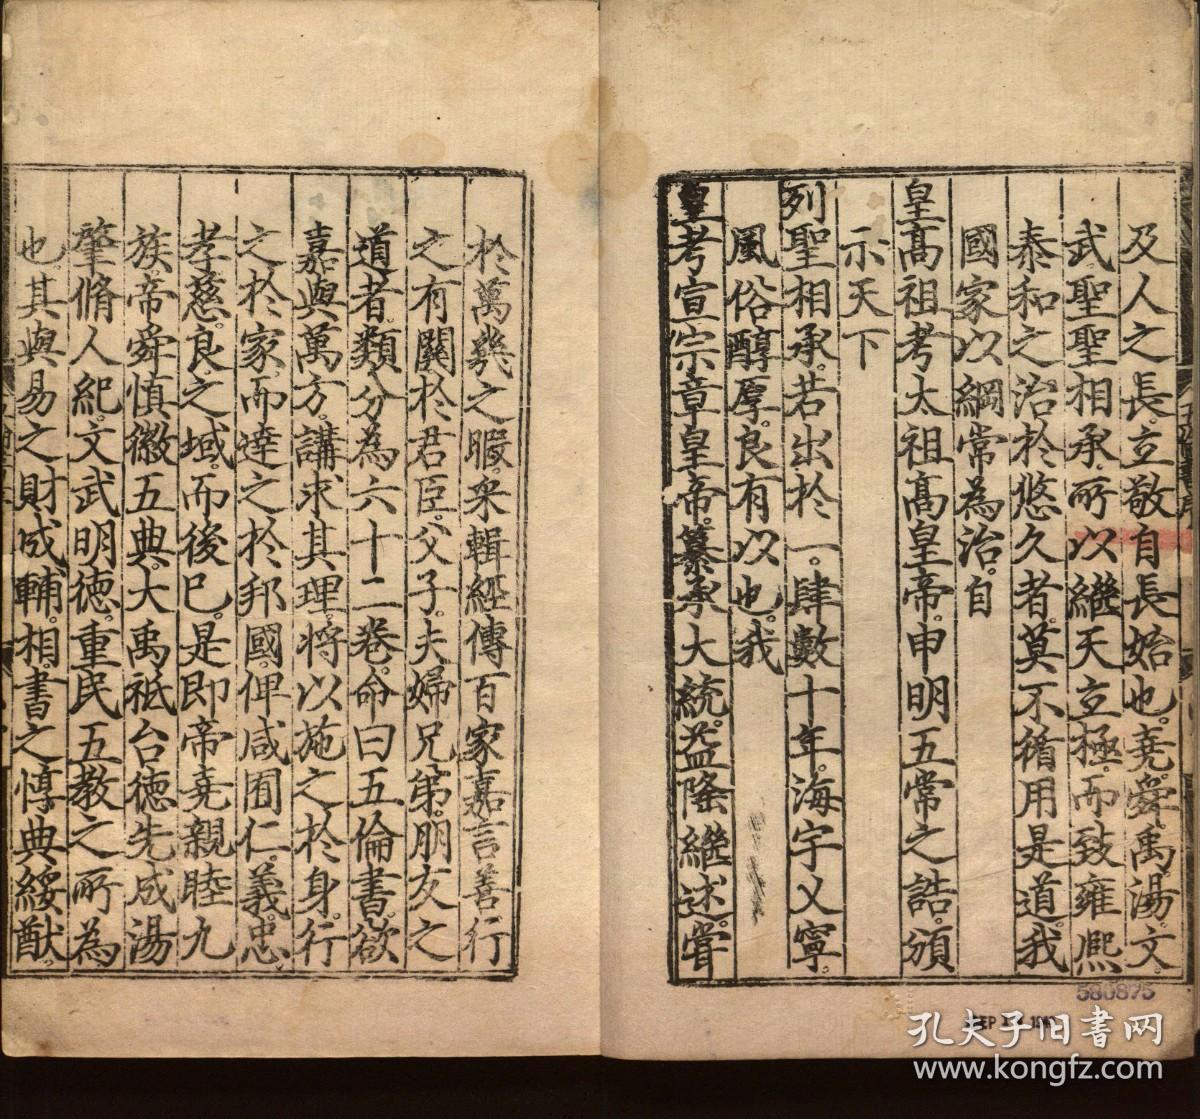 及人之長立敬自長始也堯舜禹湯文
武聖聖相承所以繼天立極而致雍熙
泰和之治於悠久者莫不循用是道我
國家以綱常為治自
皇高祖考太祖高皇帝申明五常之誥頒
示天下
列聖相承若出於一肆數十年海宇乂寧
風俗醇厚良有以也我
皇考宣宗章皇帝纂承大統益隆繼述嘗
於萬幾之暇采輯經傳百家嘉言善行
之有關於君臣父子夫婦兄弟朋友之
道者類分為六十二卷命曰五倫書欲
嘉與萬方講求其理將以施之於身行
之於家而達之於邦國俾咸囿仁義忠
孝慈良之域而後已是即帝堯親睦九
族帝舜慎徽五典大禹祗台德先成湯
肇脩人紀文武明德重民五教之所為
也其與易之財成輔相書之惇典綏猷
580875
孔夫子旧书网
www.kongfz.com